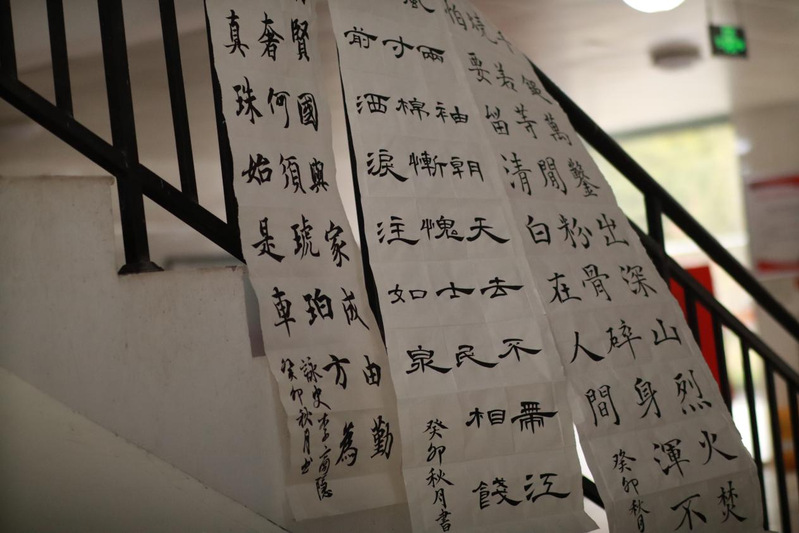 賢國與家成由勤
奢何須琥珀方為
真珠始是車
詠史李商隱
癸卯秋月書
風兩袖朝天去不帶江
寸棉慚愧士民相餞
前洒淚注如泉
癸卯秋月書
千錘萬鑿出深山烈火焚
燒若等閒粉骨碎身渾不
怕要留清白在人間
癸卯秋月